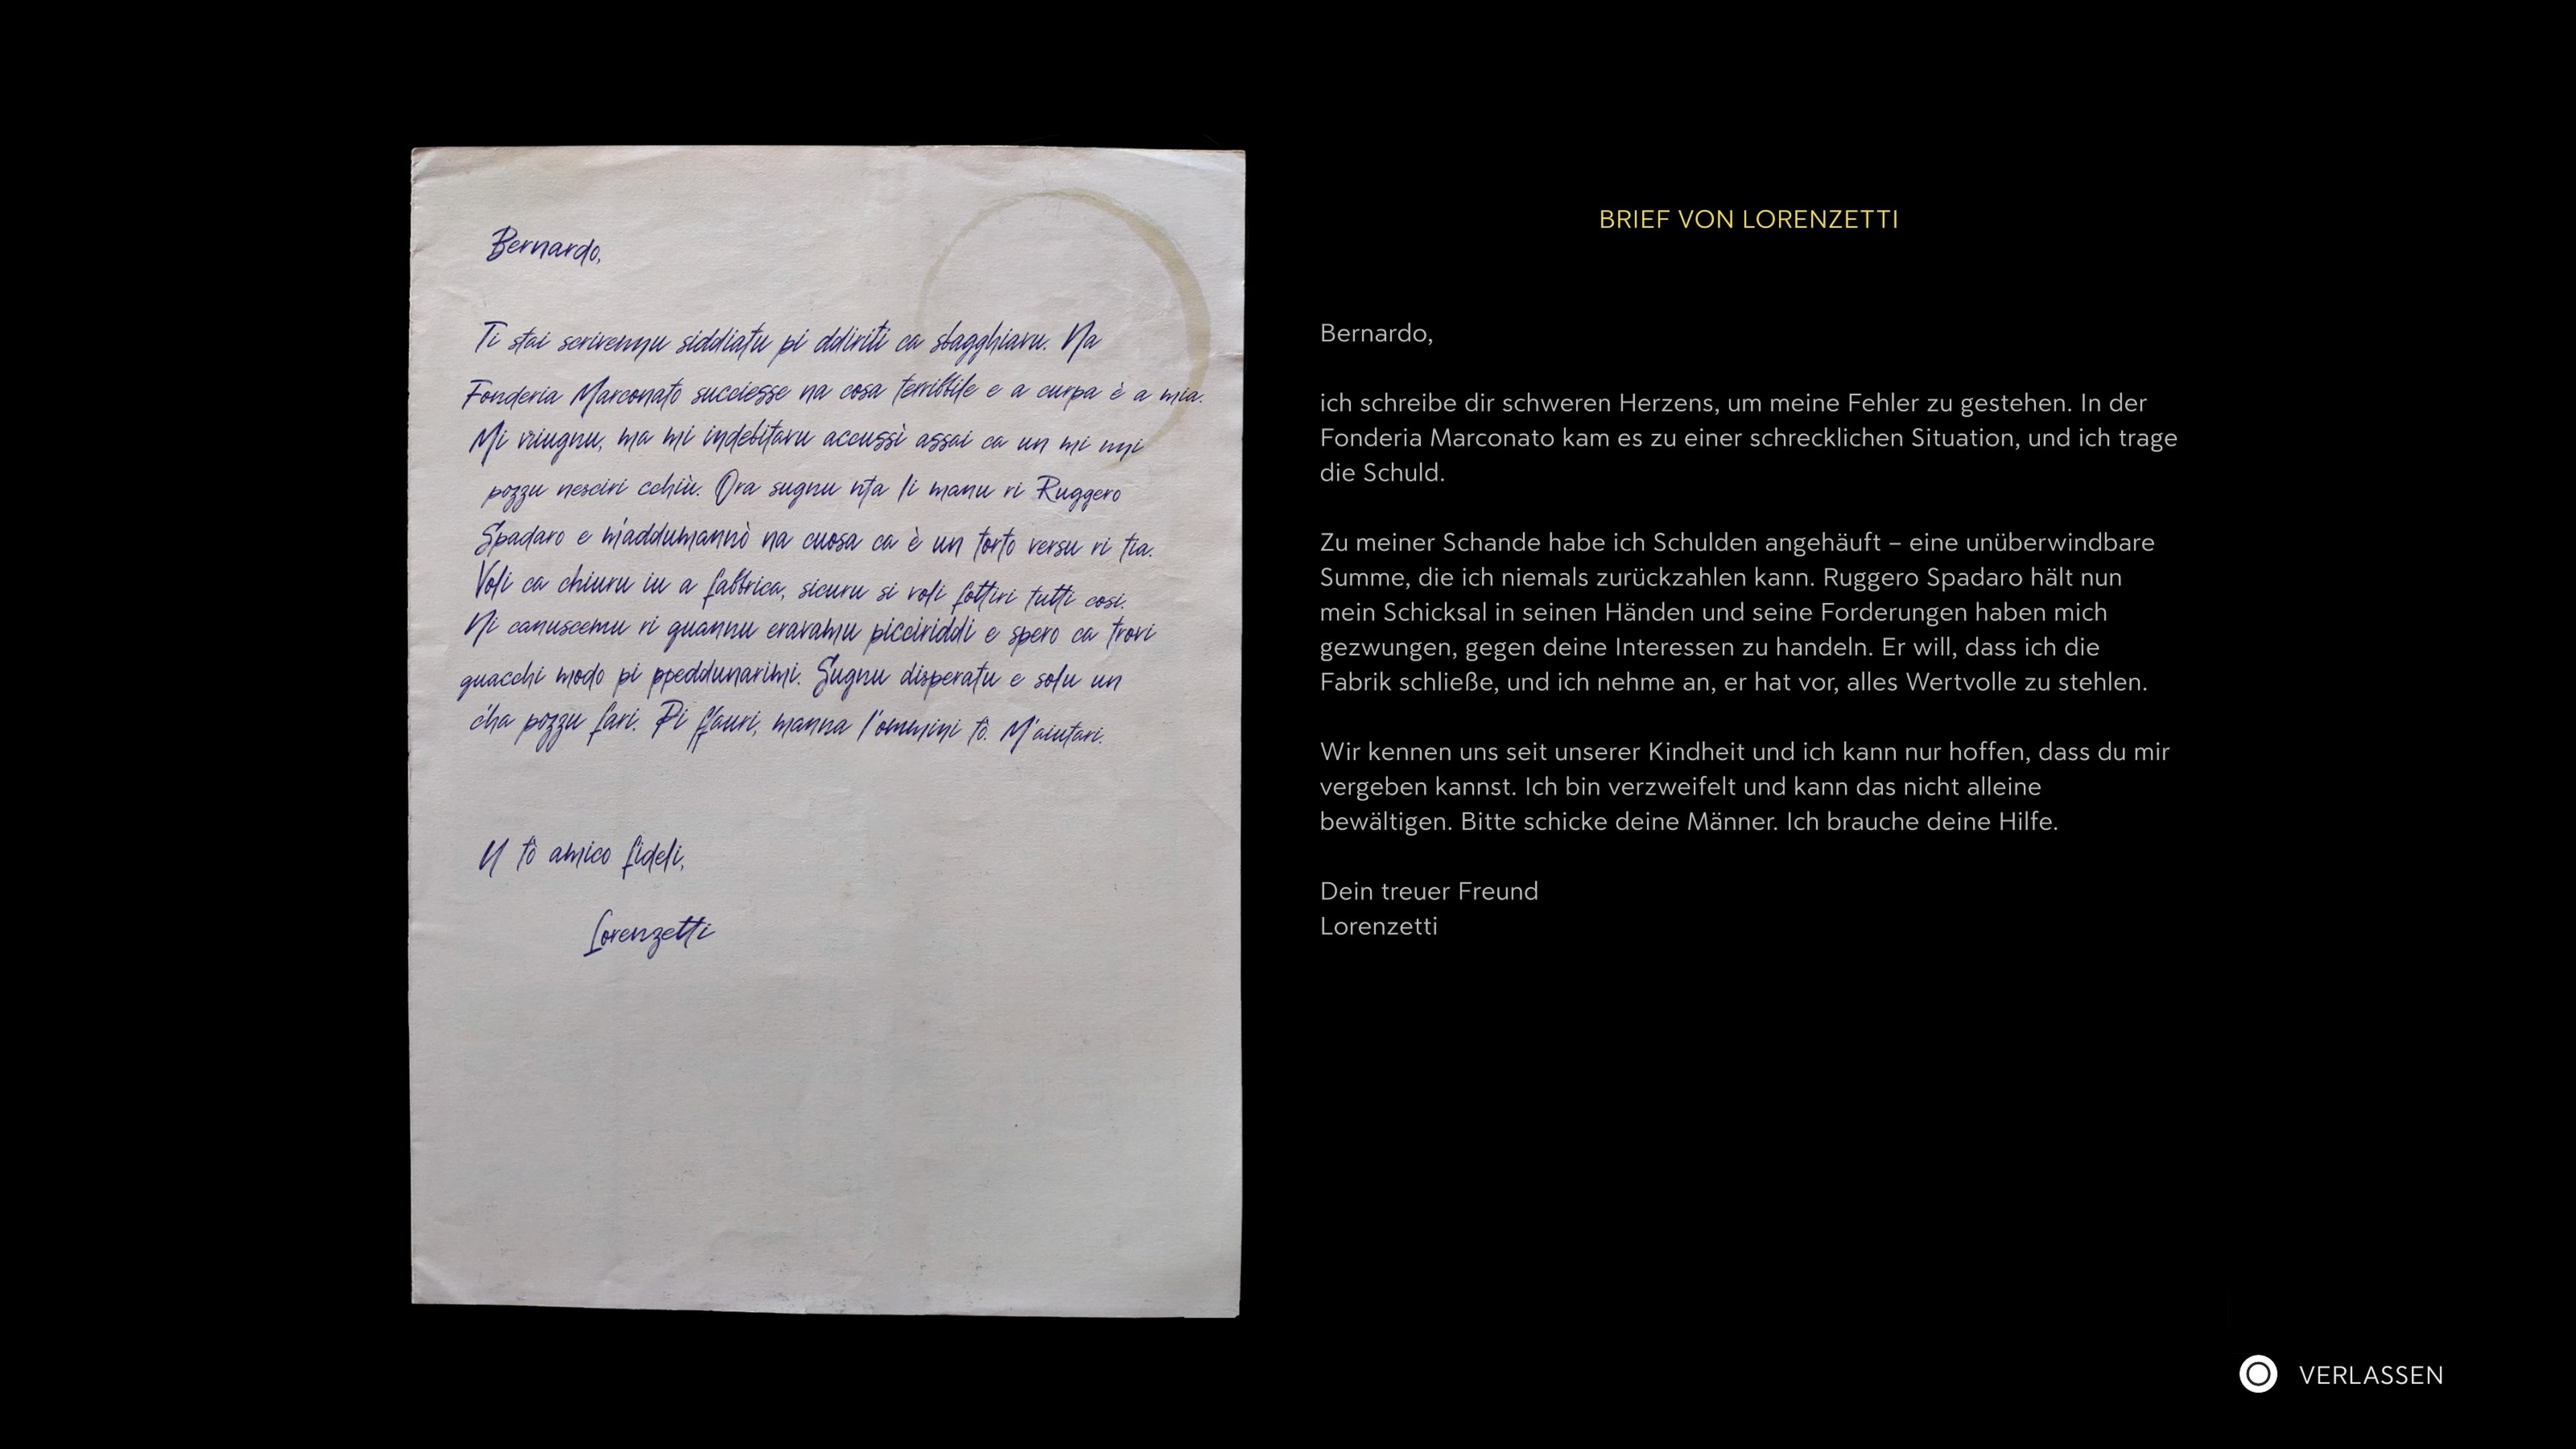 Bernardo,
Ti stai scrivennu siddiatu pi ddiriti ca sbagghiavu. Na
Fonderia Marconato succiesse na cosa terribbile e a curpa è a mia.
Mi vriugnu, ma mi indebitavu accussì assai ca un mi nni
pozzu nesciri cchiù. Ora sugnu nta li manu ri Ruggero
Spadaro e m'addumannò na cuosa ca è un torto versu ri tia.
Voli ca chiuru iu a fabbrica, sicuru si voli fottiri tutti cosi.
Ni canuscemu ri quannu eravamu picciriddi e spero ca trovi
quacchi modo pi ppeddunarimi. Sugnu disperatu e solu un
c'ha pozzu fari. Pi ffauri, manna l'ommini tò. M'aiutari.
U tò amico fideli,
Lorenzetti
BRIEF VON LORENZETTI
Bernardo,
ich schreibe dir schweren Herzens, um meine Fehler zu gestehen. In der
Fonderia Marconato kam es zu einer schrecklichen Situation, und ich trage
die Schuld.
Zu meiner Schande habe ich Schulden angehäuft – eine unüberwindbare
Summe, die ich niemals zurückzahlen kann. Ruggero Spadaro hält nun
mein Schicksal in seinen Händen und seine Forderungen haben mich
gezwungen, gegen deine Interessen zu handeln. Er will, dass ich die
Fabrik schließe, und ich nehme an, er hat vor, alles Wertvolle zu stehlen.
Wir kennen uns seit unserer Kindheit und ich kann nur hoffen, dass du mir
vergeben kannst. Ich bin verzweifelt und kann das nicht alleine
bewältigen. Bitte schicke deine Männer. Ich brauche deine Hilfe.
Dein treuer Freund
Lorenzetti
VERLASSEN